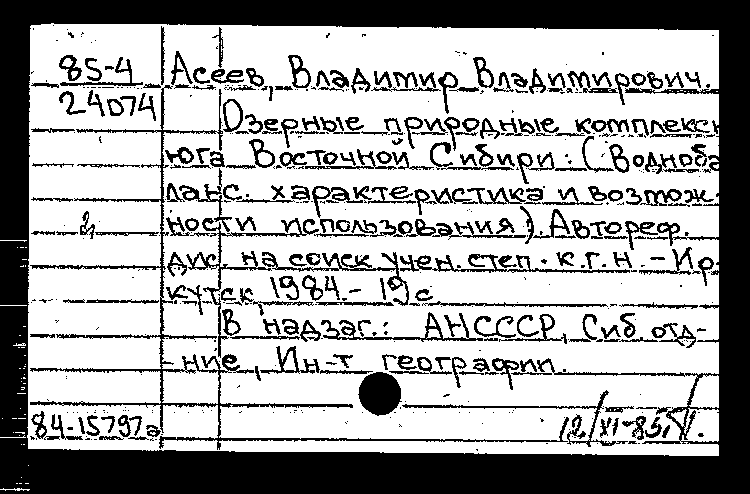 85-4 Асеев, Владимир Владимирович.
24074
Озерные природные комплекс
юга Восточной Сибири: (Водноба
ланс. характеристика и возмож-
ности использования). Автореф.
дис. на соиск учен. степ. к.г.н. - Ир-
кутск, 1984. - 19 с
В надзаг.: АН СССР, Сиб. отд-
-ние, Ин-т географии.
84-15797а 12/XI-85